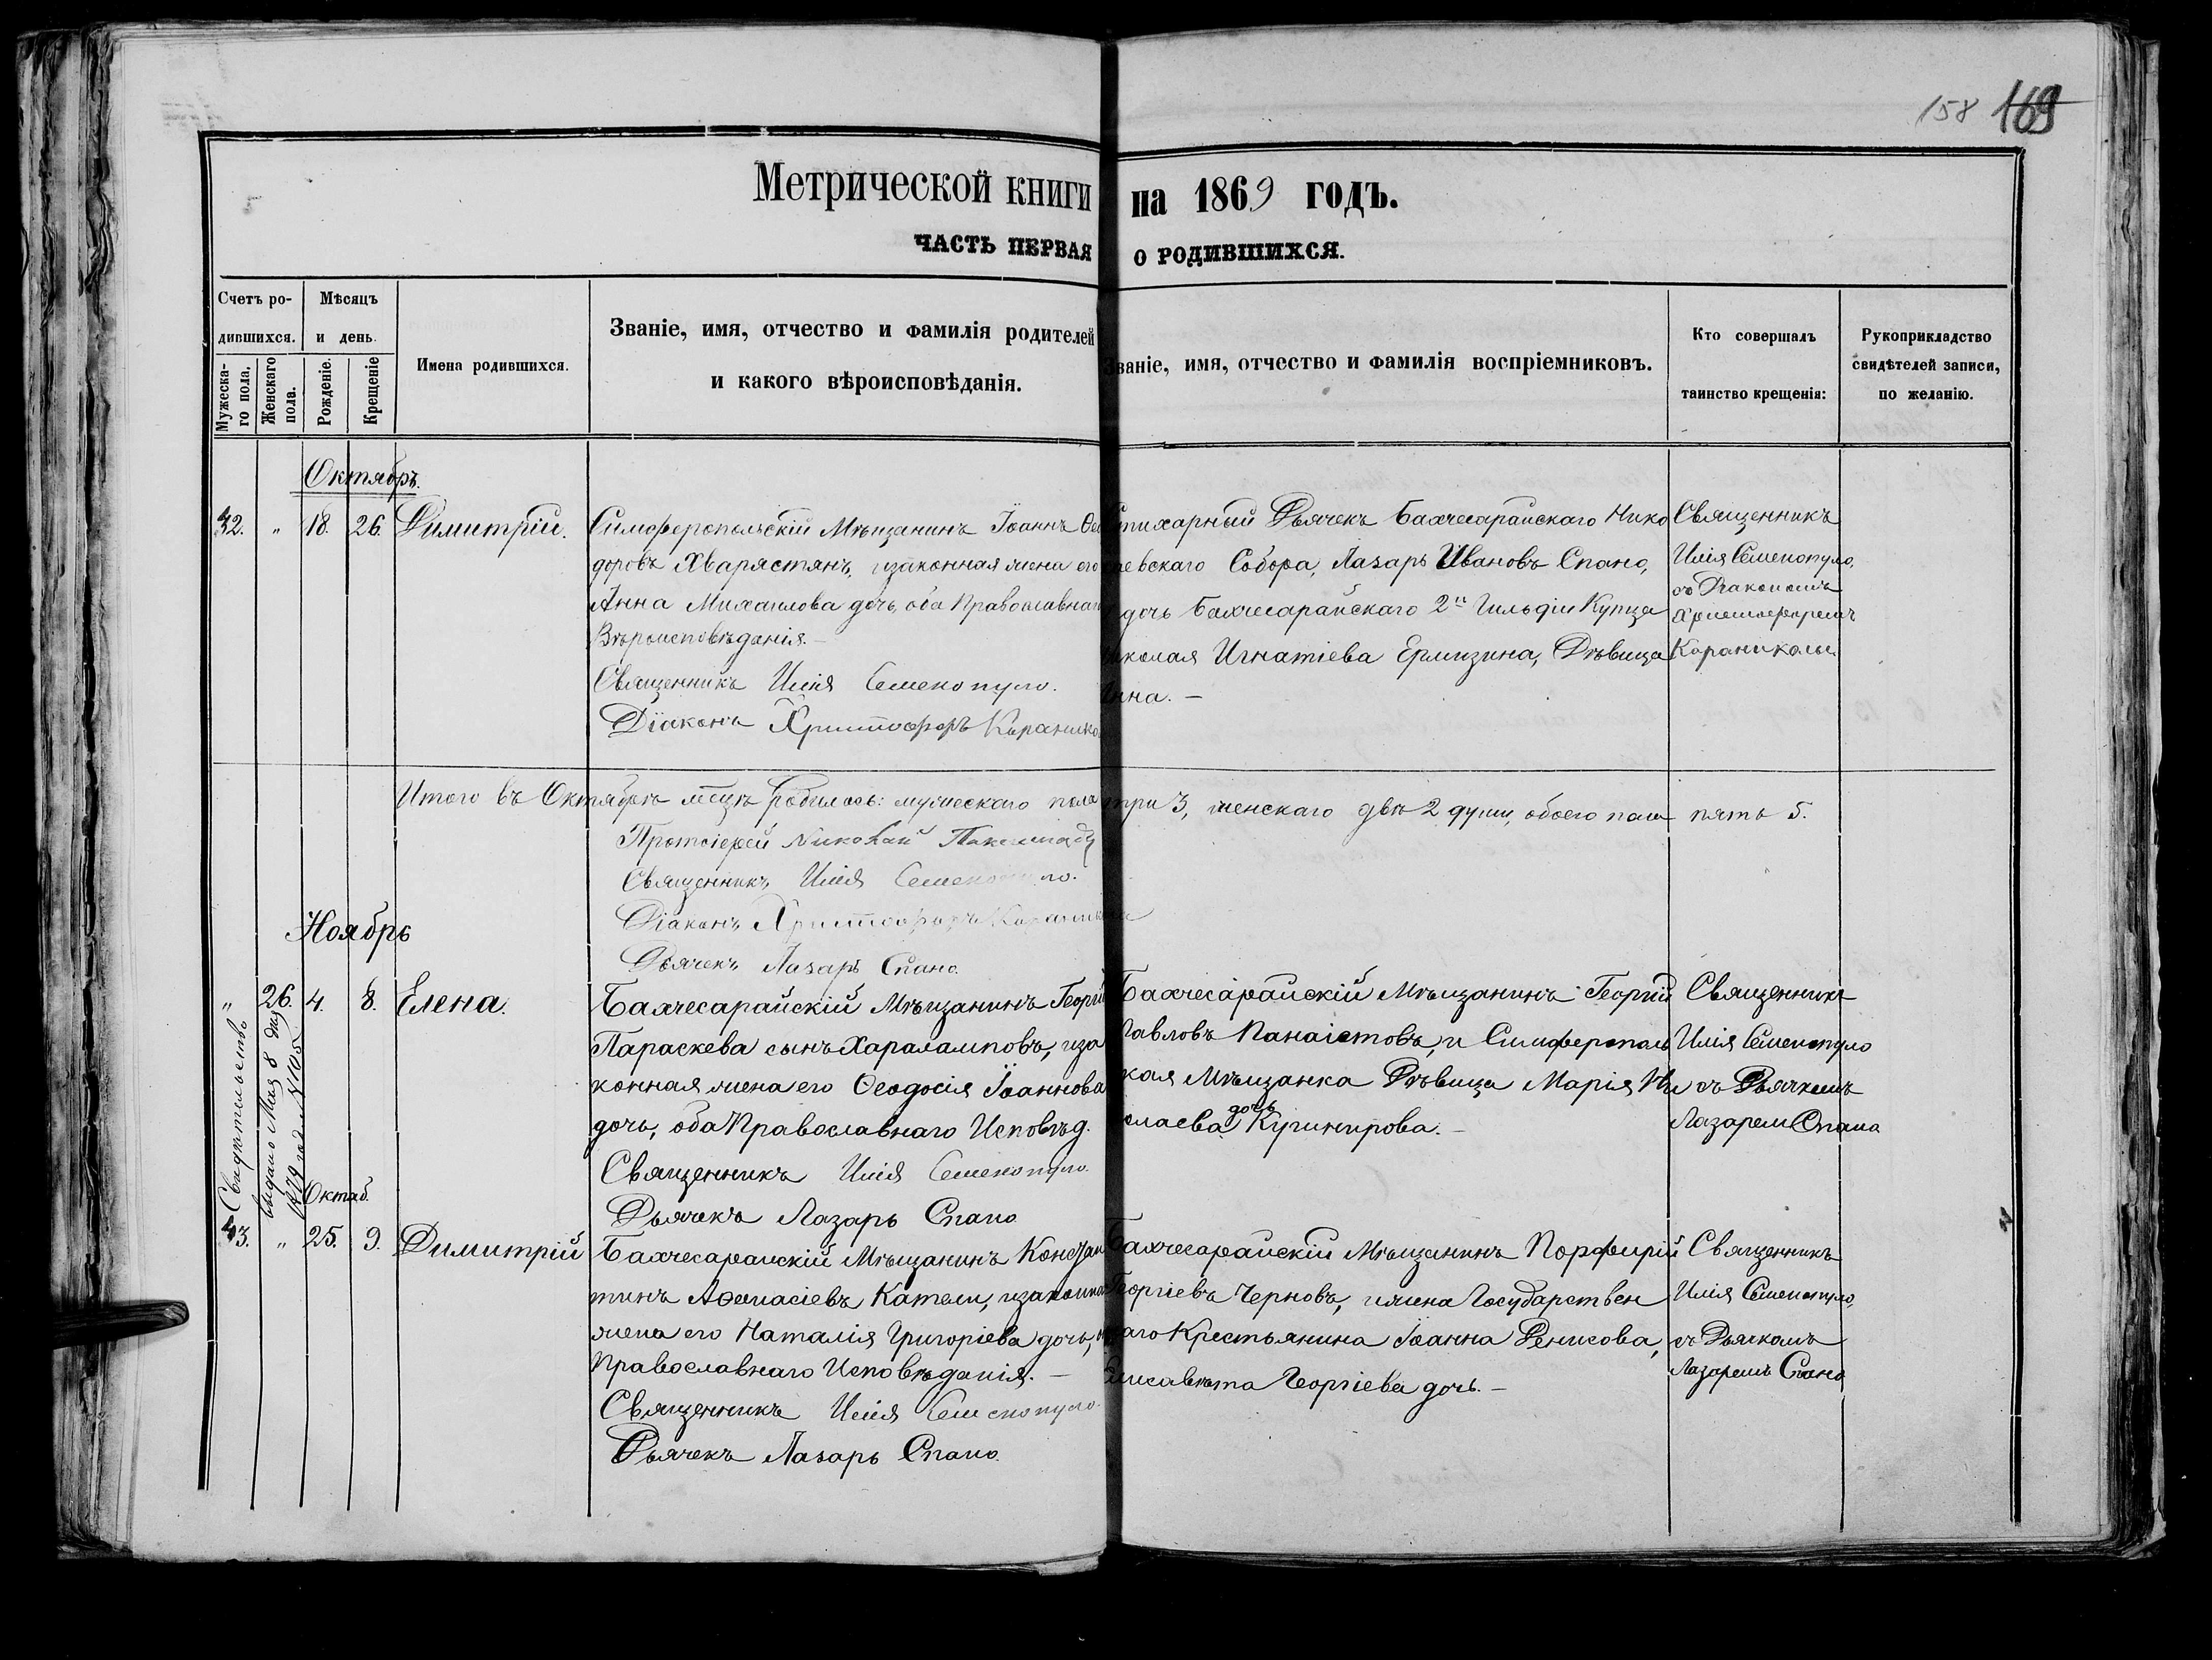 158 169
Метрической книги на 1869 годъ.
ЧАСТЬ ПЕРВАЯ О РОДИВШИХСЯ.
Счетъ ро-
дившихся.
Мужеска-
го пола.
Женскаго
пола.
Мѣсяцъ
и день.
Рожденіе.
Крещеніе
Имена родившихся.
Званіе, имя, отчество и фамилія родителей
и какого вѣроисповѣданія.
Званіе, имя, отчество и фамилія воспріемниковъ.
Кто совершалъ
таинство крещенія:
Рукоприкладство
свидѣтелей записи,
по желанію.
Октябрь.
42. " 18. 26. Димитрій.
Симферопольскій Мѣщанинъ Іоаннъ Ѳео
доровъ Хварястянъ, и законная жена его
Анна Михаилова дочь, оба Православнаго
Вѣроисповѣданія.—
Священникъ Илія Семенопуло.
Діаконъ Христофоръ Караникола
Стихарный Дьячекъ Бахчесарайскаго Нико
лаевскаго Собора, Лазарь Ивановъ Спано,
и дочь Бахчесарайскаго 2й Гильдіи Купца
Николая Игнатіева Ермизина, Дѣвица
Анна.—
Священникъ
Илія Семенопуло,
съ Діакономъ
Христофоромъ
Караниколы.
Итого въ Октябрѣ мѣсяцѣ родилось: мужескаго пола три 3, женскаго двѣ 2 души, обоего пола пять 5.
Протоіерей Николай
Священникъ Илія Семенопуло.
Діаконъ Христофоръ Караникола
Дьячекъ Лазарь Спано.
Ноябрь
" 26. 4. 8. Елена.
Свидѣтельство
выдано Мая 8 дня
1879 года №105
Бахчесарайскій Мѣщанинъ Георгій
Параскева сынъ Харалампов, и за
конная жена его Ѳеодосія Іоаннова
дочь, оба Православнаго Исповѣд.
Священникъ Илія Семенопуло.
Дьячекъ Лазарь Спано
Бахчесарайскій Мѣщанинъ Георгій
Павловъ Панаіотовъ, и Симферополь
ская Мѣщанка Дѣвица Марія Ни
колаева дочь Кушнирова.—
Священникъ
Илія Семенопуло
съ Дьячкомъ
Лазарем Спано
Октяб.
43. " 25. 9. Димитрій
Бахчесарайскій Мѣщанинъ Констан
тинъ Аѳонасіевъ Катели, и законная
жена его Наталія Григоріева дочь, оба
Православнаго Исповѣданія.—
Священникъ Илія Семенопуло.
Дьячекъ Лазарь Спано.
Бахчесарайскій Мѣщанинъ Порфирій
Георгіевъ Черновъ, и жена Государствен
наго Крестьянина Іоанна Денисова,
Елисавета Георгіева дочь.—
Священникъ
Илія Семенопуло,
съ Дьячкомъ
Лазаремъ Спано